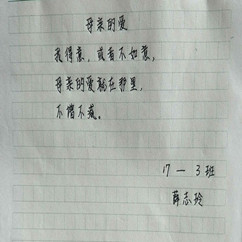 母亲的爱
我得意，或者不如意，
母亲的爱就在那里，
不增不减。
17－3班
薛志玲